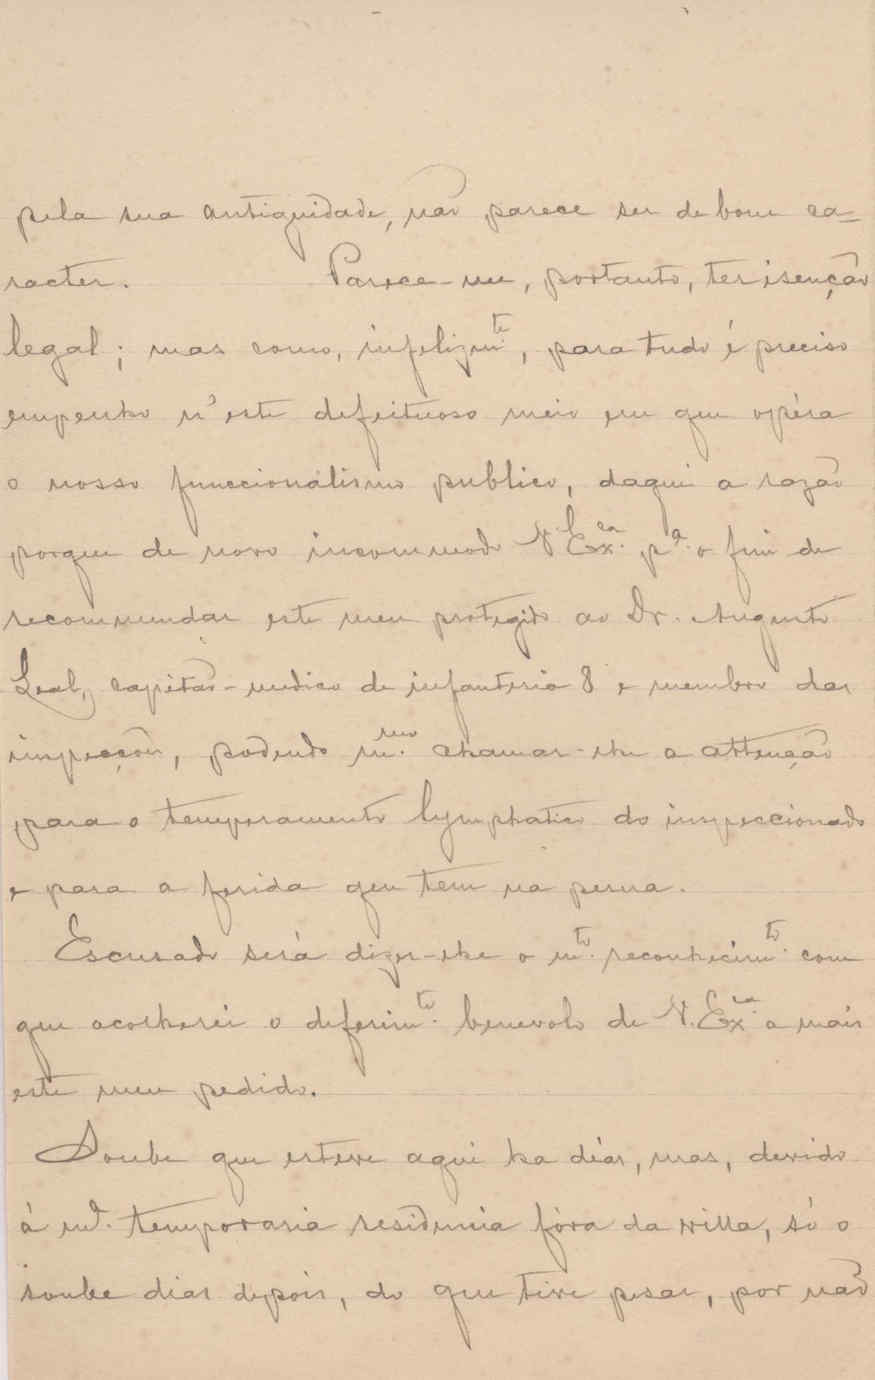 pela sua antiguidade, não parece ser de bom ca-
racter. Parece-me, portanto, ter isenção
legal; mas como, infelizmte, para tudo é preciso
empenho n'este defeituoso meio em que opéra
o nosso funccionalismo publico, daqui a razão
porque de novo incommodo V. Exca. pa. o fim de
recommendar este meu protegido ao Dr. Augusto
Leal, capitão-medico de infanteria 8 e membro das
inspecções, podendo mmo. chamar-lhe a attenção
para o temperamento lymphatico do inspeccionado
e para a ferida que tem na perna.
Escusado será dizer-lhe o mto. reconhecimto. com
que acolherei o deferimto. benevolo de V. Exca. a mais
este meu pedido.
Soube que esteve aqui ha dias, mas, devido
á ma. temporaria residencia fóra da villa, só o
soube dias depois, do que tive pesar, por não